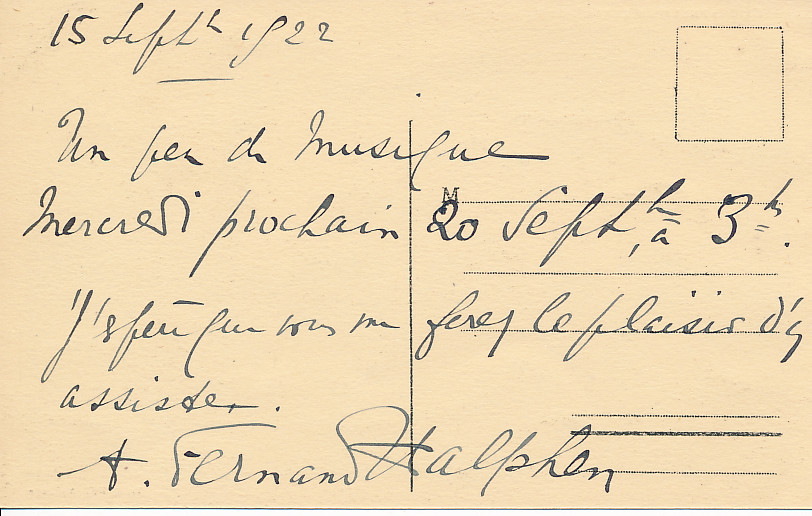 15 Septbre 1922
Un peu de Musique
Mercredi prochain 20 Septbre, à 3 hs.
M
J'espère que vous me ferez le plaisir d'y
assister.
A. Fernand Halphen